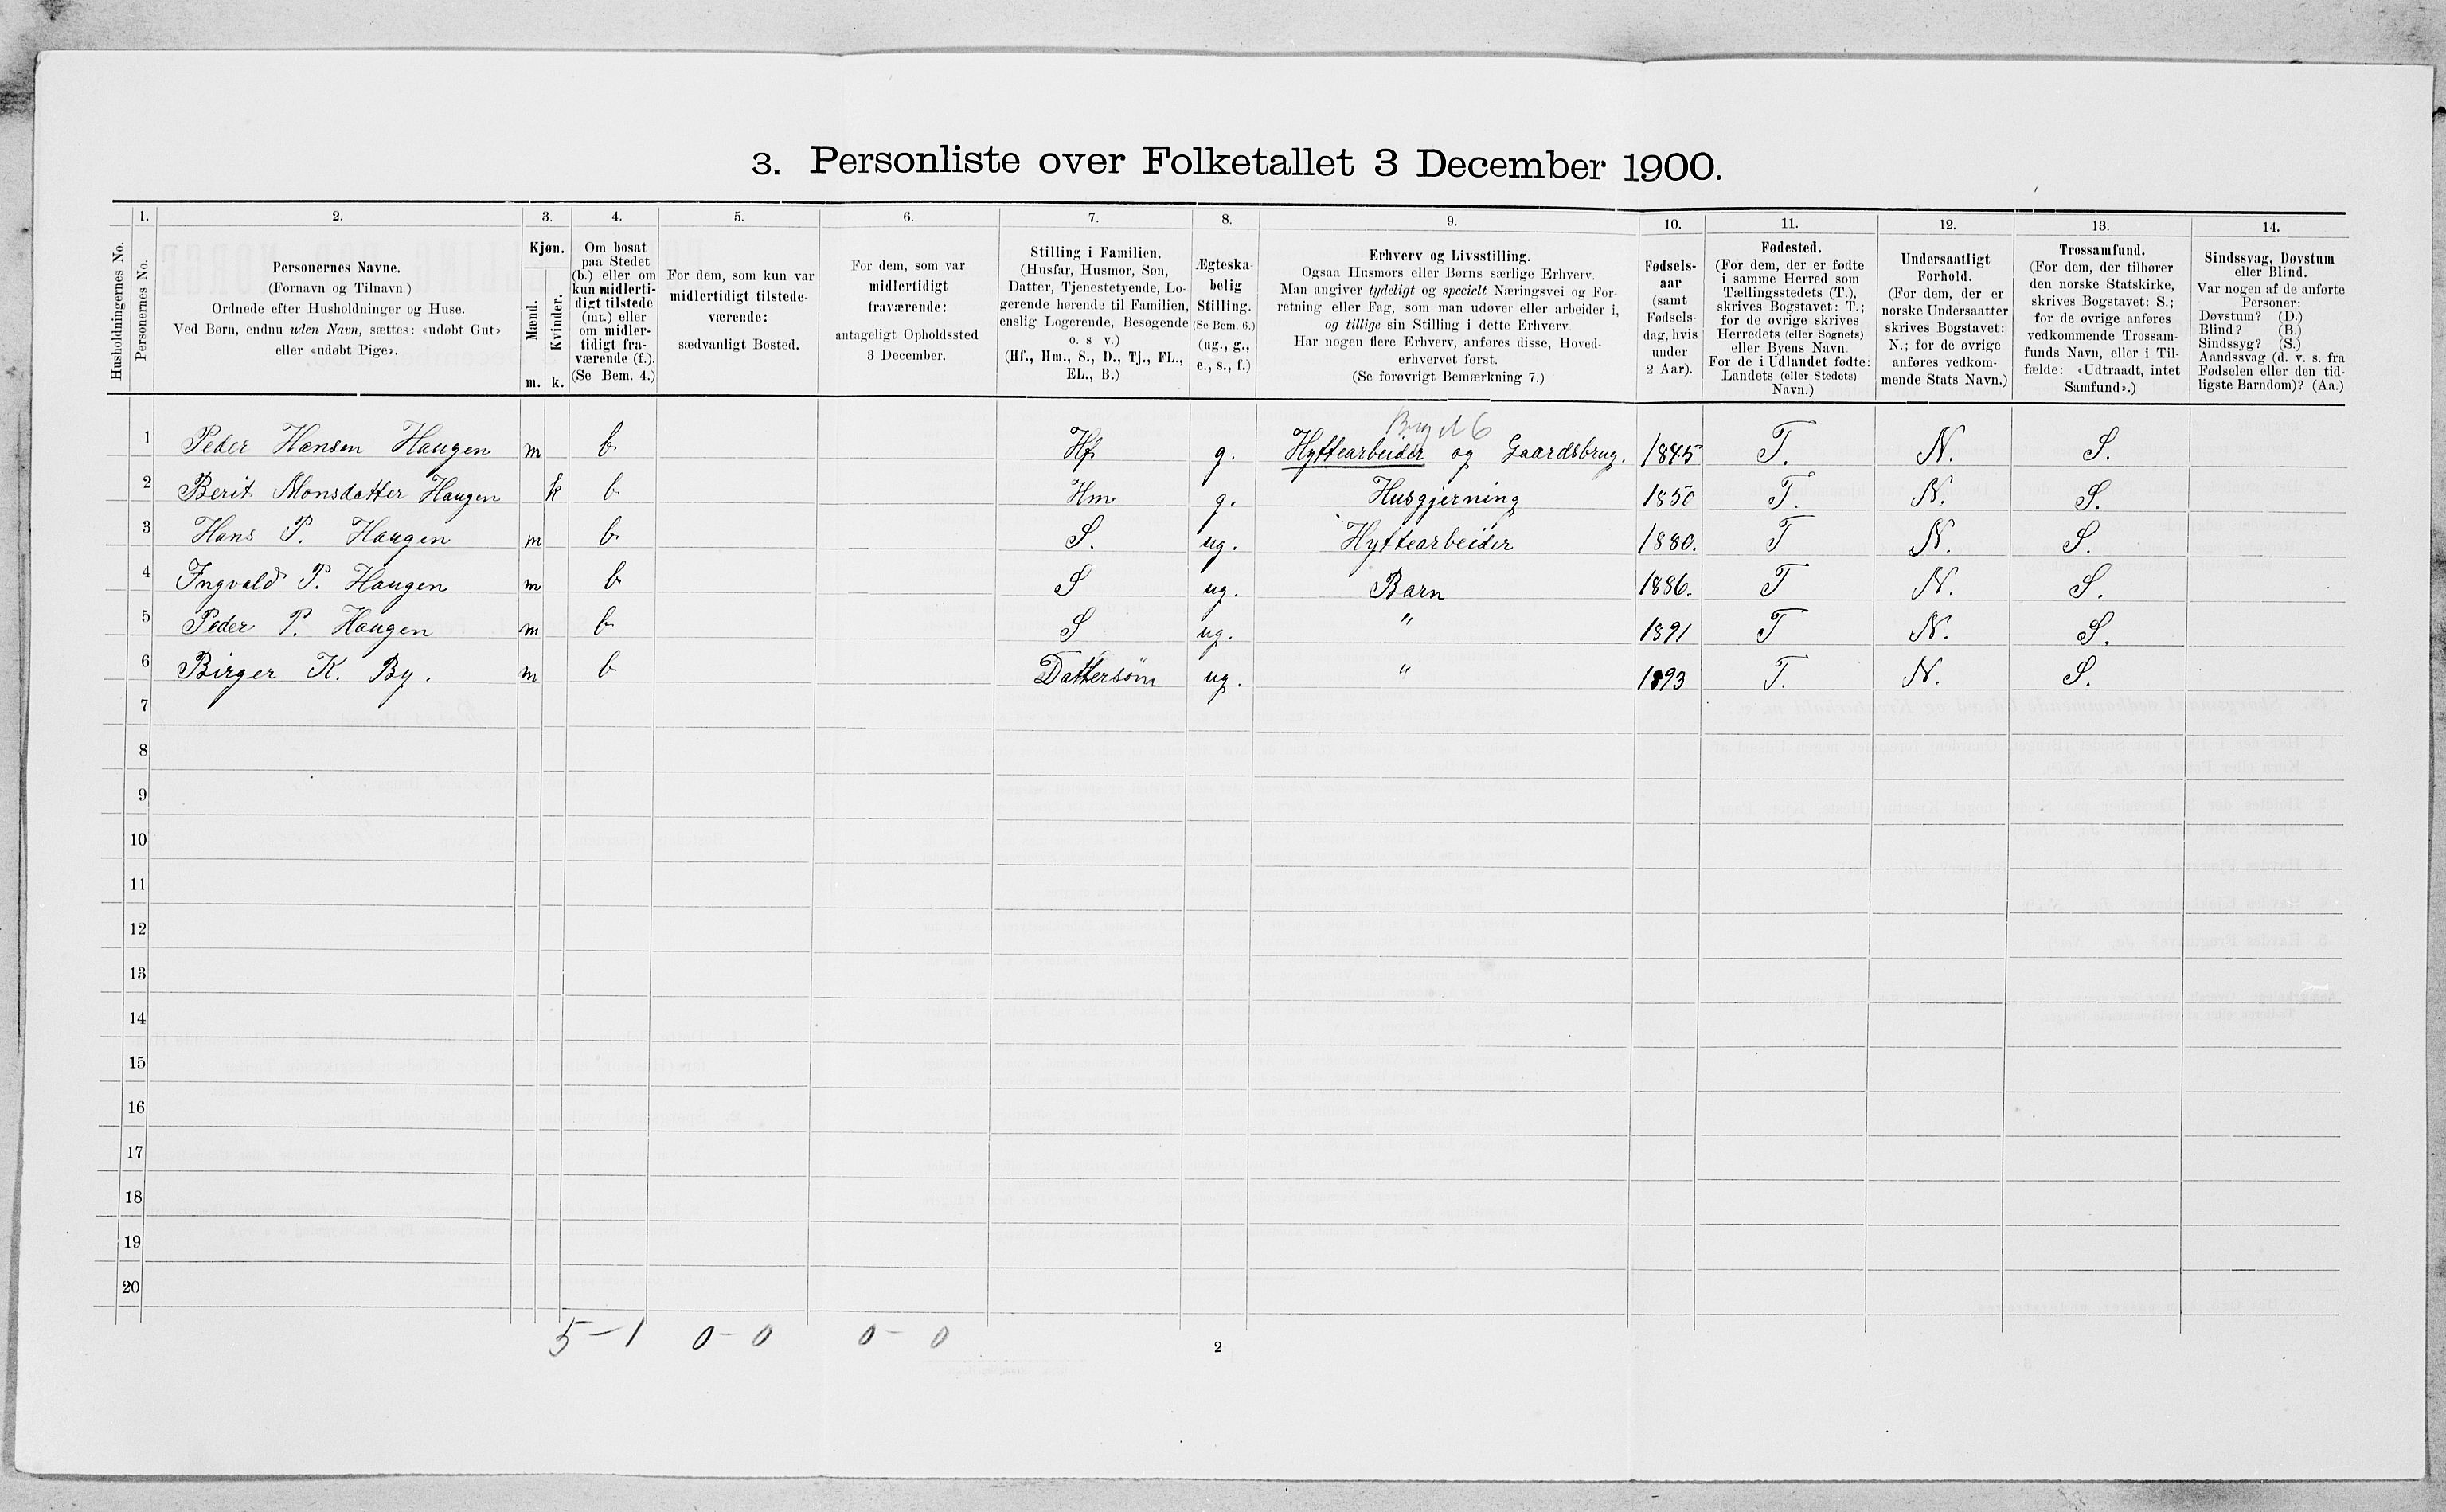 3. Personliste over Folketallet 3 December 1900.
1. 2. 3. 4. 5. 6. 7. 8. 9. 10. 11. 12. 13. 14.
Husholdningernes No.
Personernes No.
Personernes Navne.
(Fornavn og Tilnavn)
Ordnede efter Husholdninger og Huse.
Ved Børn, endnu uden Navn, sættes: «udøbt Gut»
eller «udøbt Pige».
Kjøn.
Mænd.
Kvinder.
m. k.
Om bosat
paa Stedet
(b.) eller om
kun midlerti-
digt tilstede
(mt.) eller
om midler-
tidigt fra-
værende (f.).
(Se Bem. 4.)
For dem, som kun var
midlertidigt tilstede-
værende:
sædvanligt Bosted.
For dem, som var
midlertidigt
fraværende:
antageligt Opholdssted
3 December.
Stilling i Familien.
(Husfar, Husmor, Søn,
Datter, Tjenestetyende, Lo-
gerende hørende til Familien,
enslig Logerende, Besøgende
o. s v.)
(Hf., Hm., S., D., Tj., FL.,
EL., B.)
Ægteska-
belig
Stilling.
(Se Bem. 6.)
(ug., g.,
e., s., f.)
Erhverv og Livsstilling.
Ogsaa Husmors eller Børns særlige Erhverv.
Man angiver tydeligt og specielt Næringsvei og For-
retning eller Fag, som man udøver eller arbeider i,
og tillige sin Stilling i dette Erhverv.
Har nogen flere Erhverv, anføres disse, Hoved-
erhvervet først.
(Se forøvrigt Bemærkning 7.)
Fødsels-
aar
(samt
Fødsels-
dag, hvis
under
2 Aar).
Fødested.
(For dem, der er fødte
i samme Herred som
Tællingsstedets (T.),
skrives Bogstavet: T.;
for de øvrige skrives
Herredets (eller Sognets)
eller Byens Navn.
For de i Udlandet fødte:
Landets (eller Stedets)
Navn.)
Undersaatligt
Forhold.
(For dem, der er
norske Undersaatter
skrives Bogstavet:
N.; for de øvrige
anføres vedkom-
mende Stats Navn.)
Trossamfund.
(For dem, der tilhører
den norske Statskirke,
skrives Bogstavet: S.;
for de øvrige anføres
vedkommende Trossam-
funds Navn, eller i Til-
fælde: «Udtraadt, intet
Samfund».)
Sindssvag, Døvstum
eller Blind.
Var nogen af de anførte
Personer:
Døvstum? (D.)
Blind? (B.)
Sindssyg? (S.)
Aandssvag (d. v. s. fra
Fødselen eller den tid-
ligste Barndom)? (Aa.)
1 Peder Hansen Haugen m b. Hf. g. Hyttearbeider og Gaardsbrug. 1845 T. N. S.
2 Berit Monsdatter Haugen k b. Hm. g. Husgjerning 1850 T. N. S.
3 Hans P. Haugen m b. S. ug. Hyttearbeider 1880. T N. S.
4 Ingvald P. Haugen m b. S ug. Barn 1886. T N. S.
5 Peder P. Haugen m b. S ug. " 1891 T N. S.
6 Birger K. By. m b. Dattersøn ug. " 1893 T. N. S.
7
8
9
10
11
12
13
14
15
16
17
18
19
20
5-1 0-0 0-0
2